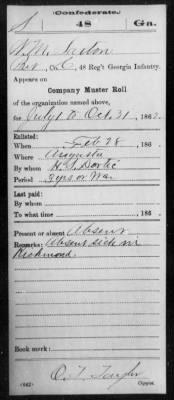 Confederate.
S 48 Ga.
Pvt, Co. C, 48 Reg't Georgia Infantry.
Appears on
Company Muster Roll
of the organization named above,
for July 1 to Oct 31, 1862.
Enlisted:
When Feb 28, 186
Where Augusta
By whom
Period 3 yrs or War
Last paid:
By whom
To what time , 186 .
Present or absent Absent
Remarks: Absent sick in
Richmond.
Book mark:
(642)
Copyist.